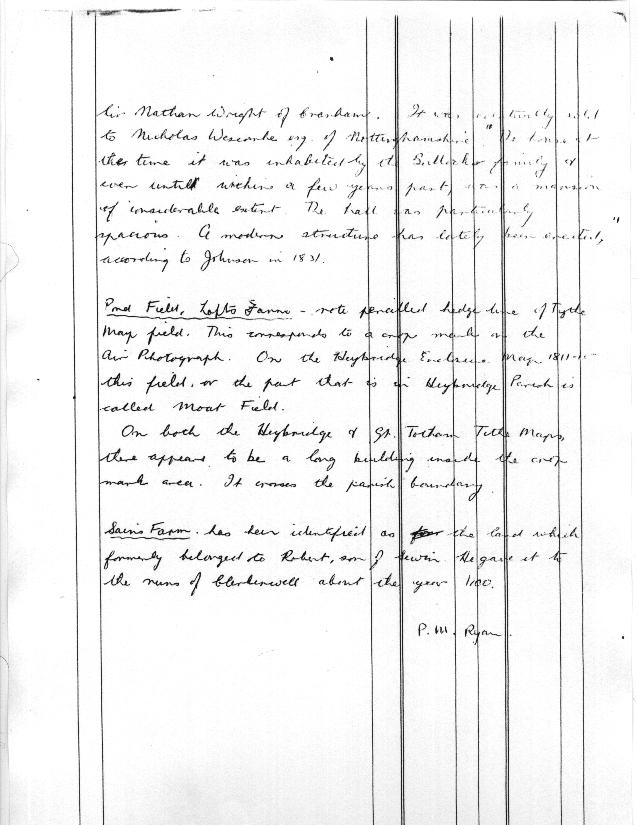 Sir Nathan Wright of Cranham. It was eventually sold
to Nicholas Wescombe esq. of Nottinghamshire. "The house at
the time it was inhabited by the family &
even untill within a few years past, was a mansion
of considerable extent. The hall was particularly
spacious. A modern structure has lately been erected,"
according to Johnson in 1831.
Pond Field, Lofts Farm - note pencilled hedge line of Tythe
Map field. This corresponds to a crop mark on the
Air Photograph. On the Heybridge Enclosure Map 1811-
this field, or the part that is in Heybridge Parish is
called Moat Field.
On both the Heybridge & Gt. Totham Tithe Maps,
there appears to be a long building inside the crop
mark area. It crosses the parish boundary.
Sains Farm. has been identified as the land which
formerly belonged to Robert, son of Lewin. He gave it to
the nuns of Clerkenwell about the year 1100.
P. M. Ryan.